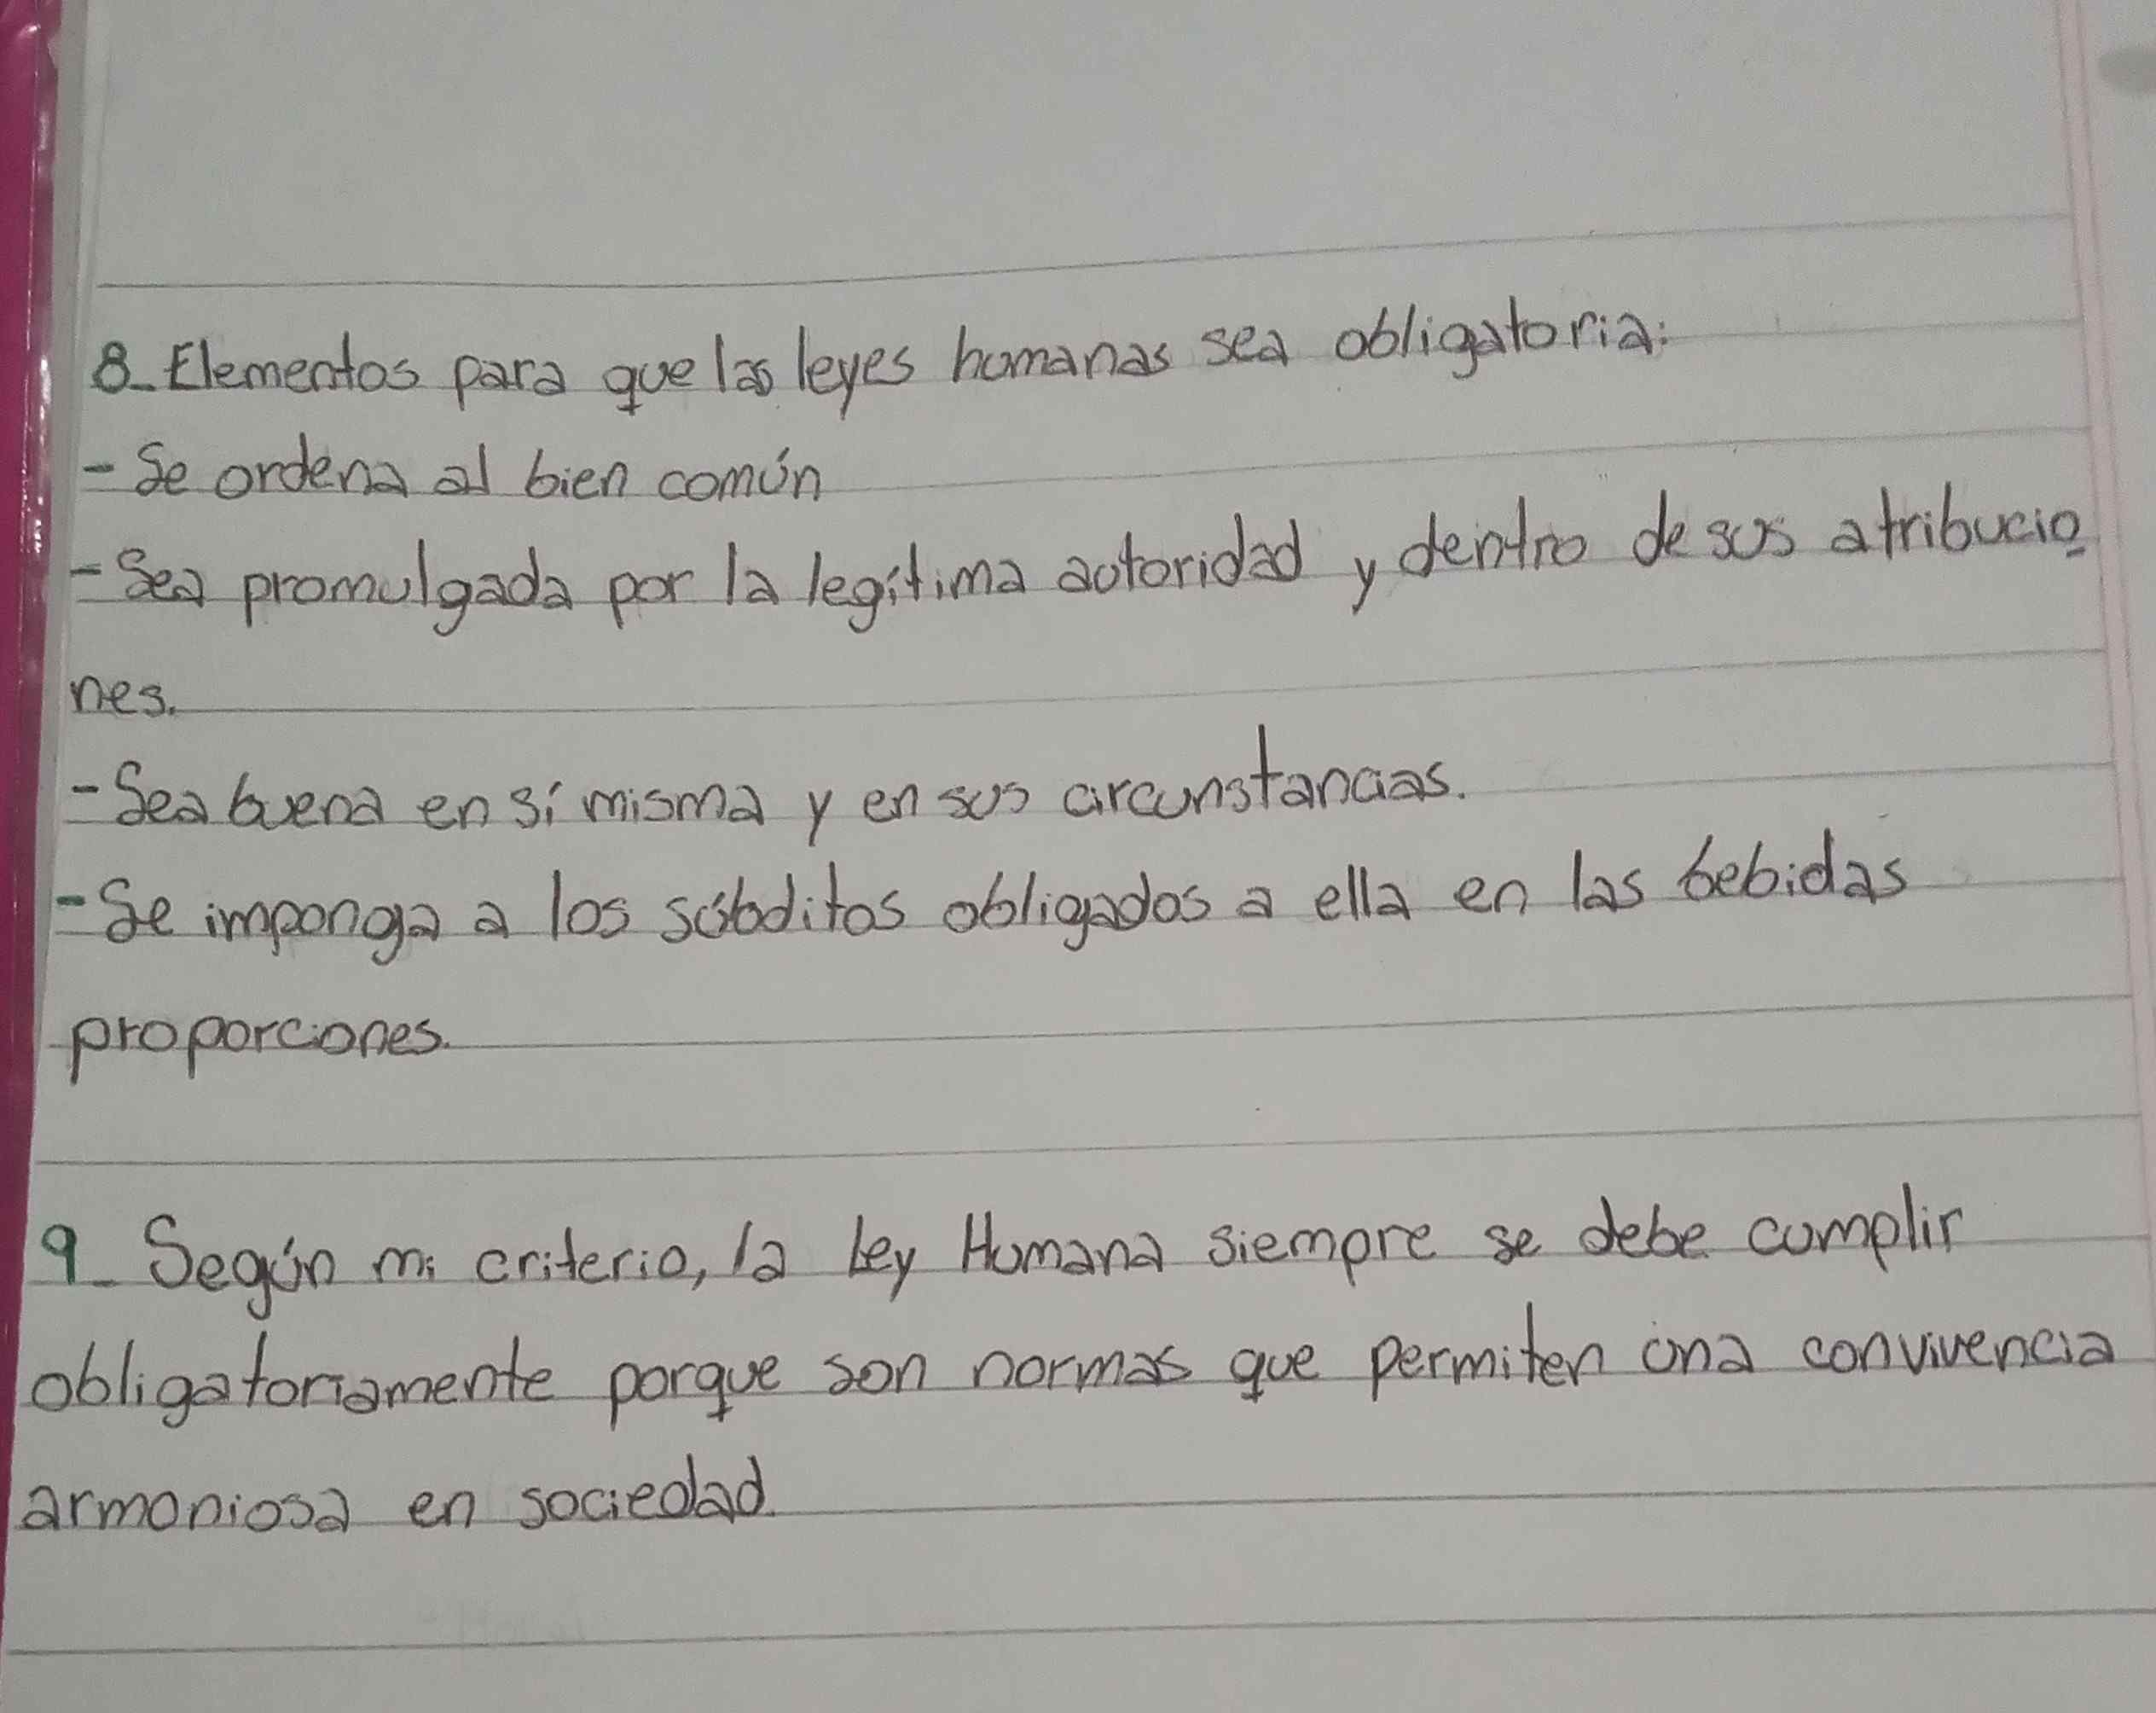 8_ Elementos para que las leyes humanas sea obligatoria:
- Se ordena al bien común
- Sea promulgada por la legítima autoridad y dentro de sus atribucio
nes.
- Sea buena en sí misma y en sus circunstancias.
- Se imponga a los súbditos obligados a ella en las bebidas
proporciones.
9_ Según mi criterio, la Ley Humana siempre se debe cumplir
obligatoriamente porque son normas que permiten una convivencia
armoniosa en sociedad.